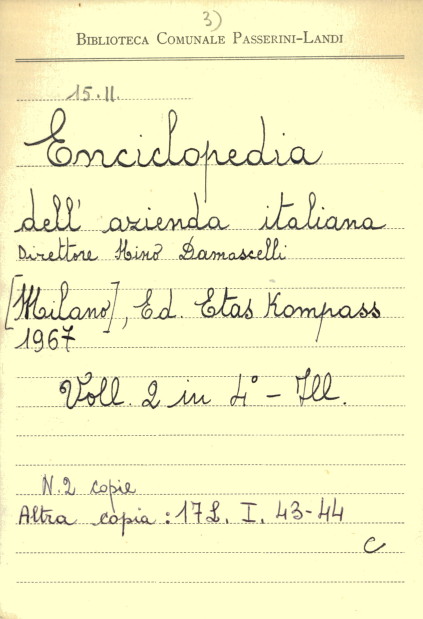 3)
Biblioteca Comunale Passerini-Landi
15.II.
Enciclopedia
dell' azienda italiana
Direttore Mino Damascelli
[Milano], Ed. Etas Kompass
1967
Voll. 2 in 4° - Ill.
N. 2 copie
Altra copia: 17L. I. 43-44
C